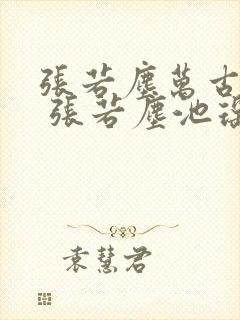 張若塵萬古
張若塵池
袁慧君